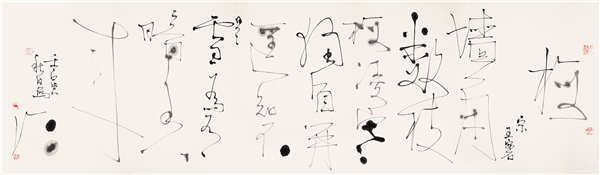 梅
宋
王安石
墙角
数枝
梅凌寒
独自开
遥知不
是雪为有
暗香
来